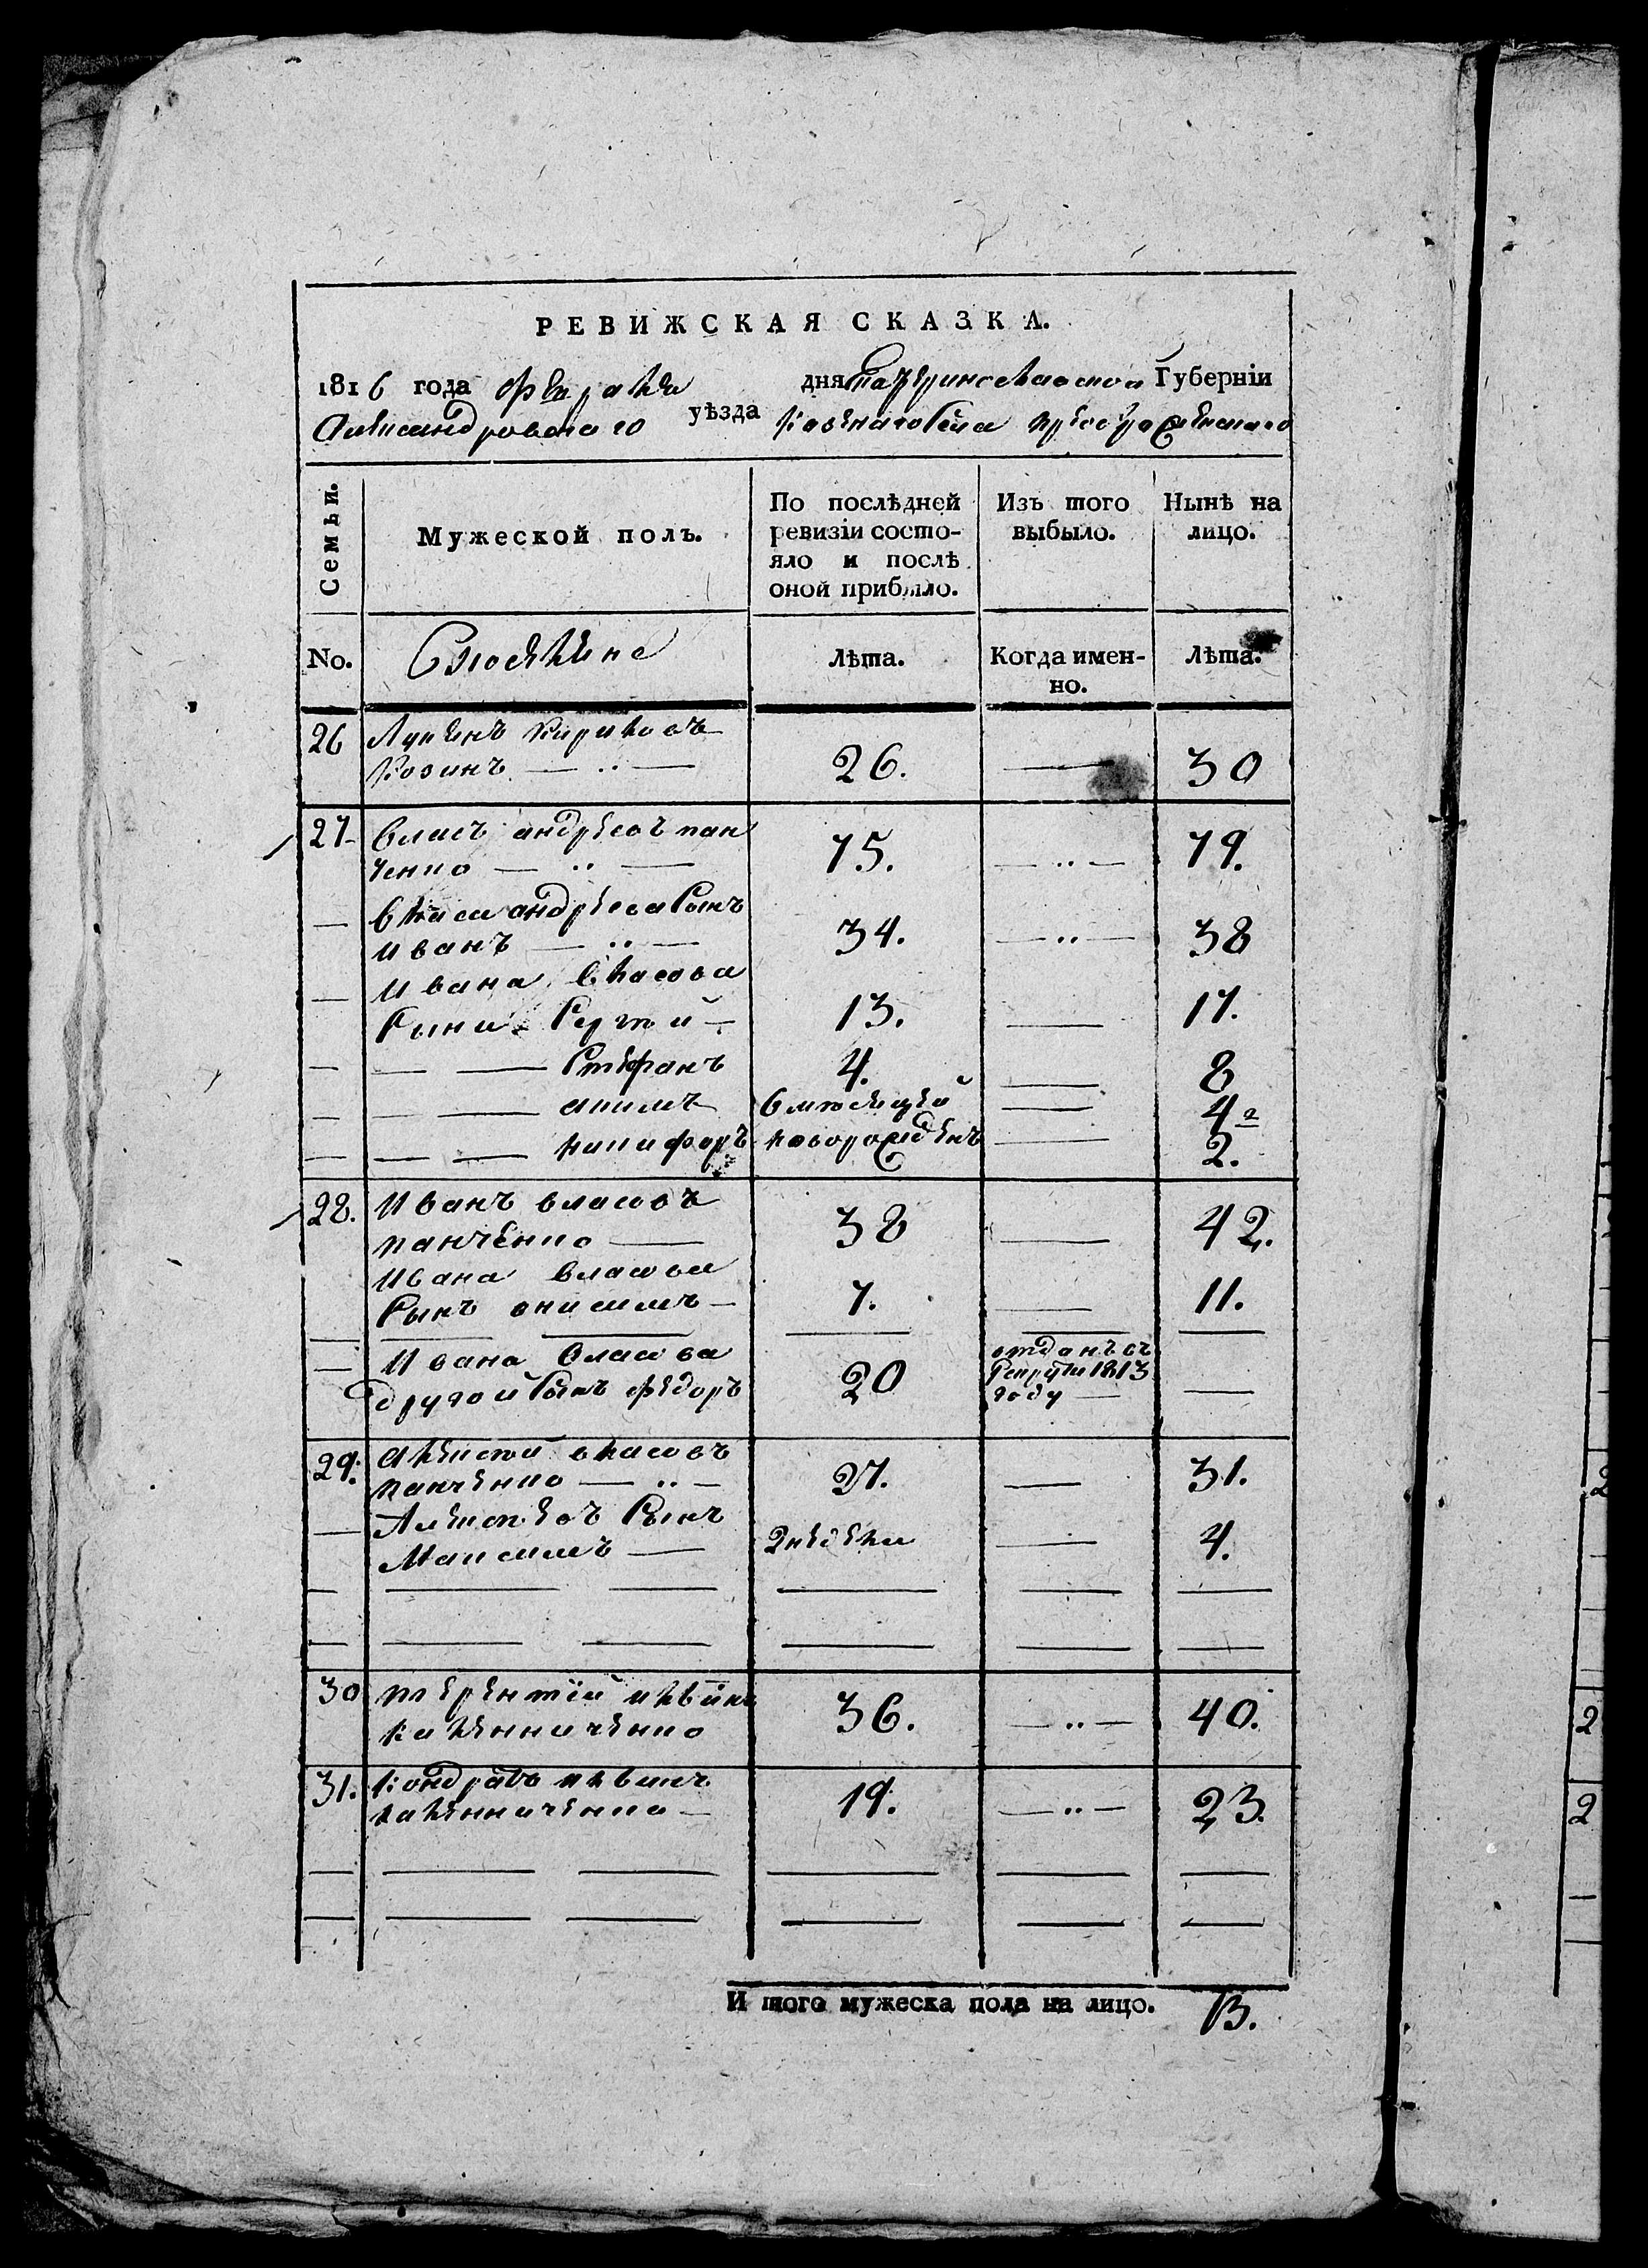 РЕВИЖСКАЯ СКАЗКА.
1816 года Февраля дня Катеринославской Губерніи
Александровского уѣзда Казенаго Села Преображенского
Семьи.
Мужеской полъ.
По послѣдней ревизіи состо-
яло и послѣ
оной прибыло.
Изъ того
выбыло.
Нынѣ на
лицо.
No.
Лѣта.
Когда имен-
но.
Лѣта.
26 Лукинъ Кириловъ
Козинъ 26. 30
27 Власъ андреевъ пан
ченко 75. 79.
Власа андреева Сынъ
иванъ 34. 38
ивана власова
Сыни Сергѣй 13. 17.
Стефанъ 4. 8
акимъ 4
никифоръ новорожденъ 2.
28. Иванъ власовъ
панченко 38 42.
Ивана власова
Сынъ онисимъ 7. 11.
Ивана власова
другой Сынъ федоръ 20
отданъ въ
Рекруты 1813
году
29. алексѣй власовъ
панченко 27. 31.
Алексѣевъ Сынъ
Максимъ 2 недели 4.
30 терентій
калениченко 36. 40.
31. Кондратъ
калениченко 19. 23.
И того мужеска пола на лицо. 13.
2
2
2